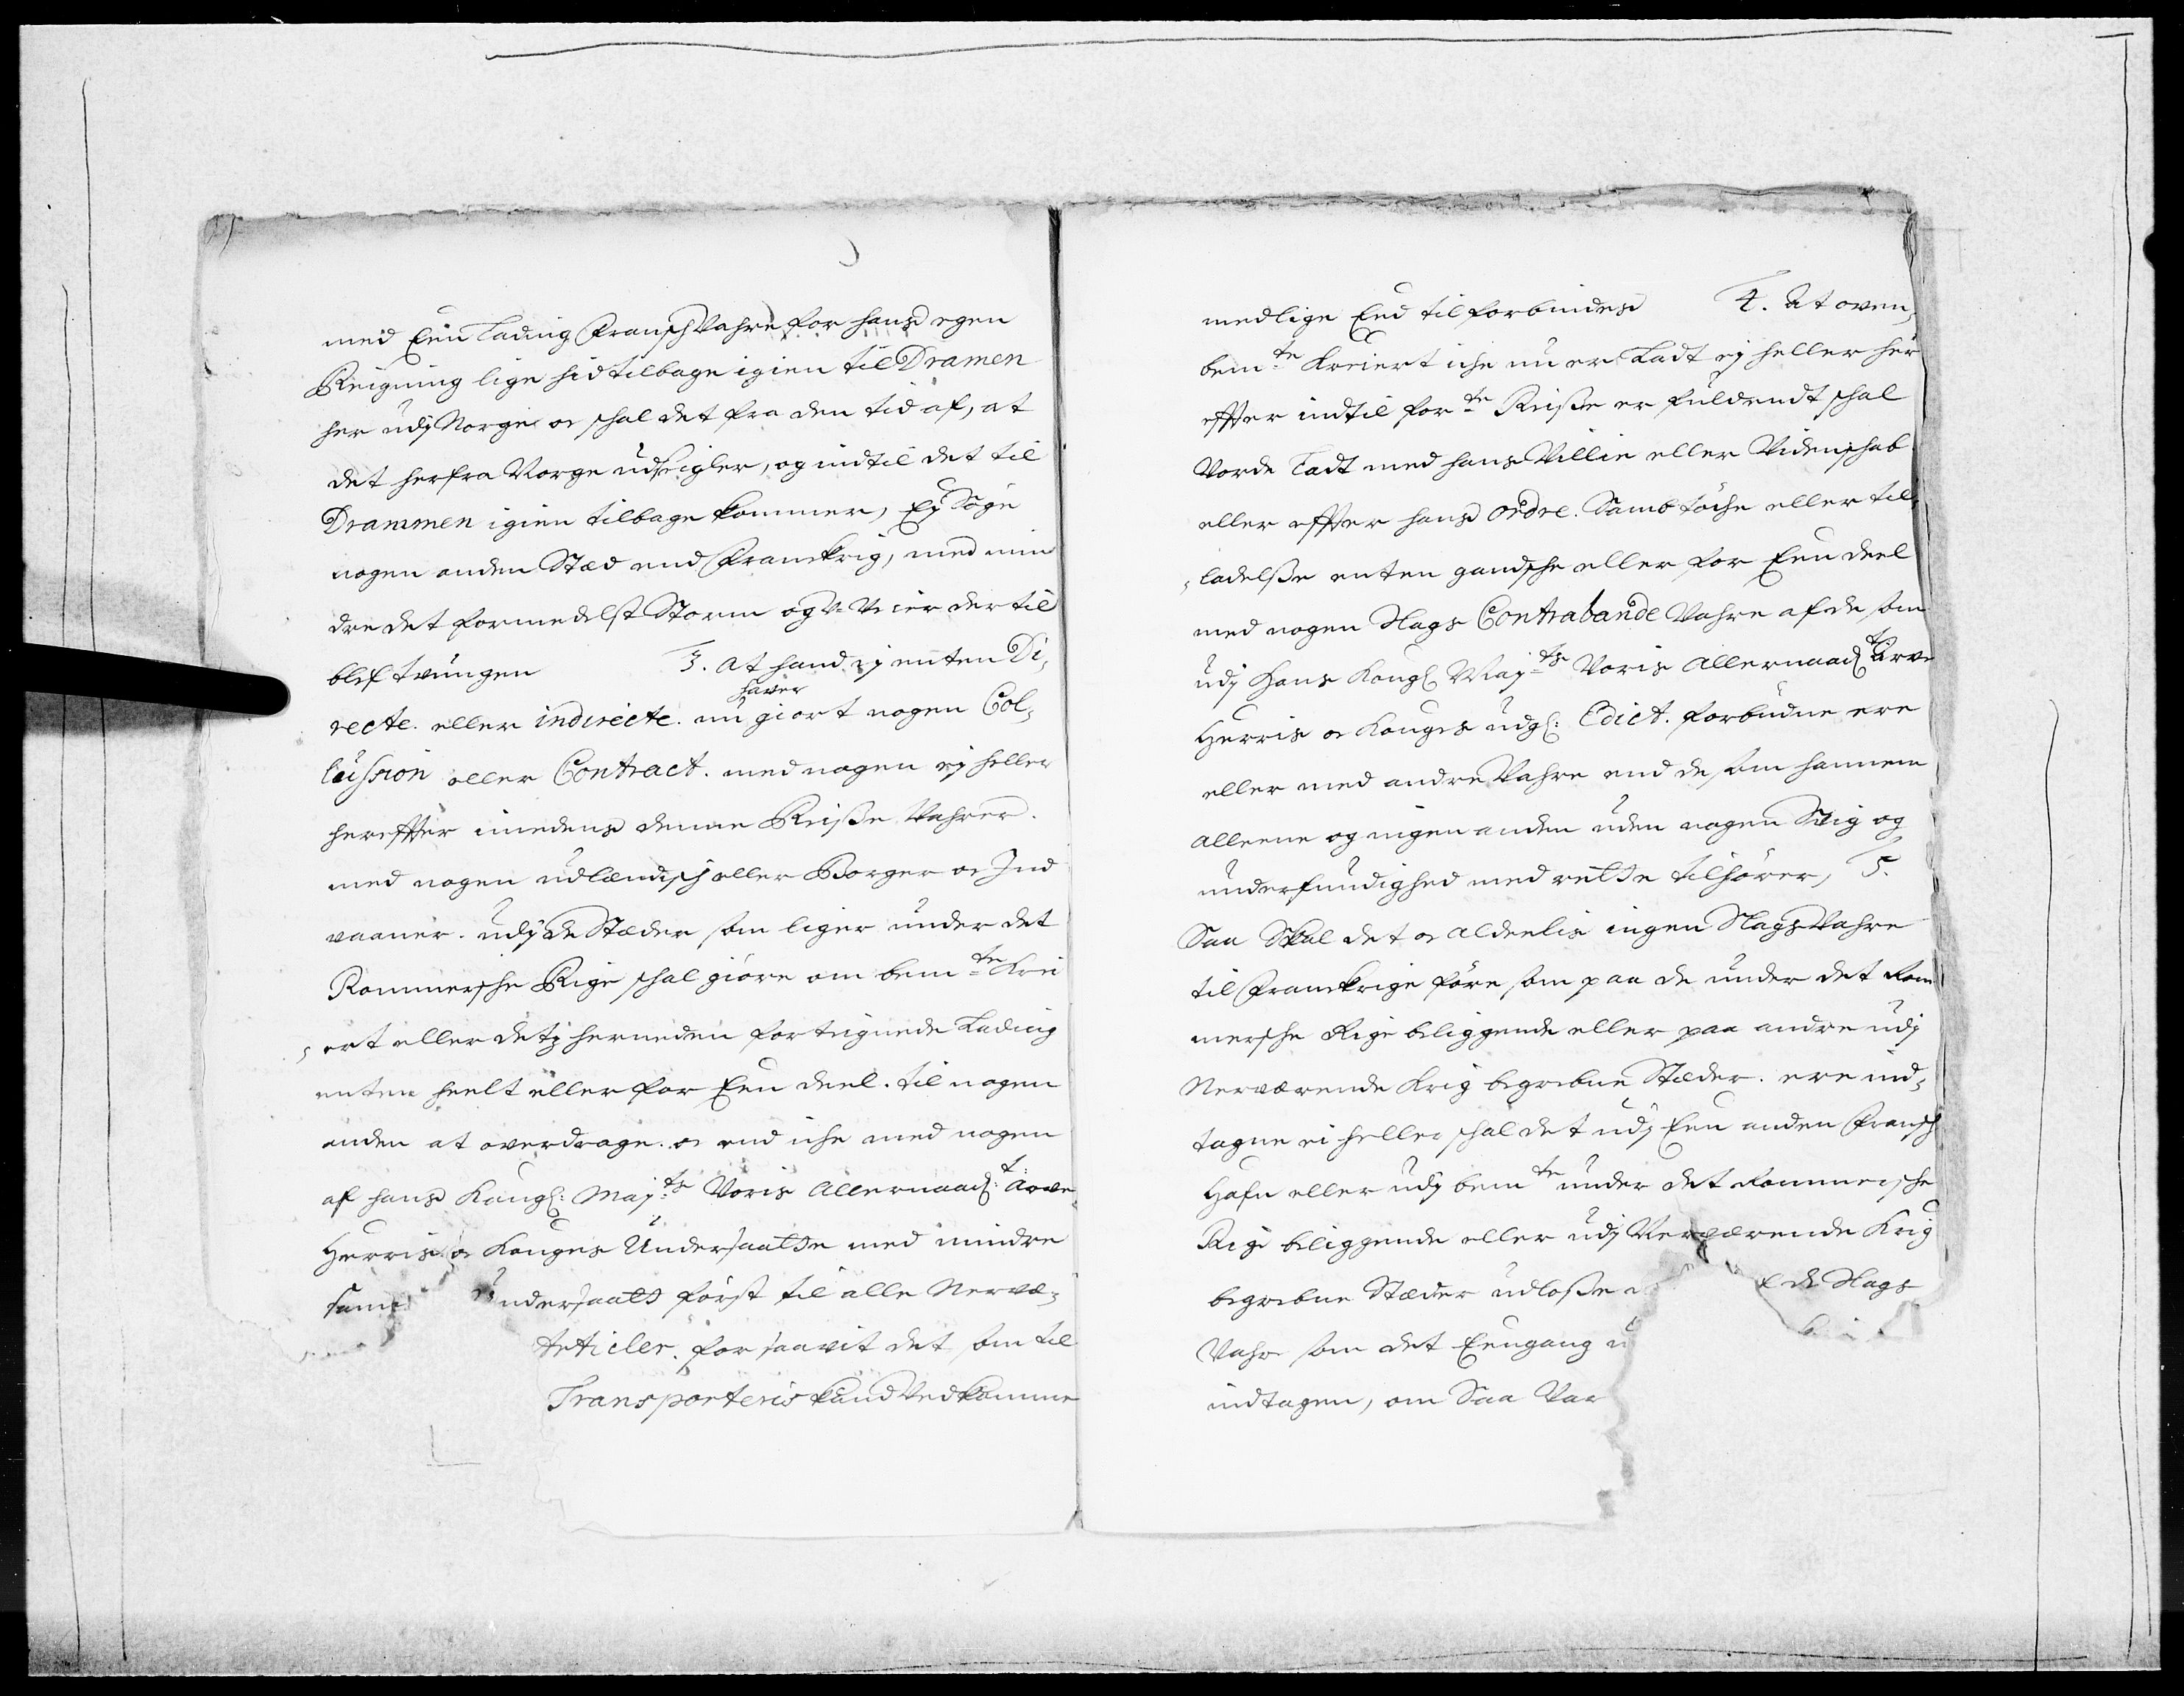 med Een Lading Fransch Vahre for hans egen
Reigning lige hid tilbage igien til Dramen
her udj Norge oc schal det fra den tid af, at
det herfra Norge udseigler, og indtil det til
Drammen igien tilbage kommer, Ej Søge
nogen anden Stæd end Franckrig, med min
dre det formedelst Storm og V-Veier der til
blef tvungen 3. At hand ej enten Di¬
recte. eller indirecte. nu haver giort nogen Col¬
lussion eller Contract. med nogen ej heller
hereffter imedens denne Reisse Vahrer.
med nogen udlændisch eller Borger oc Ind
vaaner. udj de Stæder som liger under det
Rommersche Rige schal giøre om bemte Krei
ert eller dets herneden for tegnede Lading
enten heelt eller for Een deel. til nogen
anden at overdrage. oc end iche med nogen
af hans Kongl: Majts Voris Allernaadt: Arve
Herris oc Konges Undersaatte med mindre
samme Undersaatt først til alle Nervæ¬
Articler. for saavit det som til
Transporteris kand Vedkomme
medlige Eed tilforbindes 4. At oven¬
bemte Kreiert iche nu er Ladt ej heller her
effter indtil forte Reisse er fuldendt schal
Vorde Ladt med hans Villie eller Videnschab
eller effter hans ordre. Sambtöche eller til
ladelsse enten gandsche eller for Een deel
med nogen Slags Contrabande Vahre af de som
udj Hans Kongl Majts Voris Allernaadt Arve
Herris oc Konges udg: Edict. forbudne ere
eller med andre Vahre end de som hannem
alleene og ingen anden uden nogen Svig og
underfundighed med rette tilhører, 5.
Saa Skal det oc aldeelis ingen Slags Vahre
til Franckrige føre som paa de under det Rom
mersche Rige beliggende eller paa andre udj
Nerværende Krig begrebne Stæder. ere ind¬
tagne ei heller schal det udj Een anden Fransch
Hafn eller udj bemte under det Rommersche
Rige beliggende eller udj Nerværende Krig
begrebne Stæder udlosse de Slags
Vahre som det Eengang u
indtagen, om Saa Var